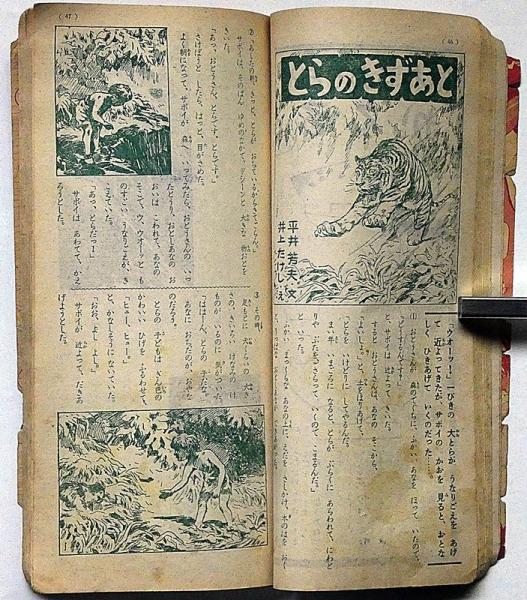 (46)
とらのきずあと
平井芳夫 文
井上たけし え
「ウオーッ!」一ぴきの 大とらが うなりごえを あげ
て 近よってきたが、サボイの かおを 見ると、おとな
しく ひきあげて いくのだった……。
① おとうさんが、森のでぐちに、ふかい あなを ほって いたので、
「どうするんです?」
すると おとうさんは、あなの そこから、
「よいしょ。」と、土を ほうりあげて、
「とらを いけどりに してやるんだ。
まい年 いまごろに なると、とらが、ぶらくに あらわれて、にわと
りや ぶたを さらって いくので、こまるんだ。」
と いった。
ふかい まっくらな あなの 上に、えだを さしかけ、木のはを おく
(47)
きいた。
サボイは、そのばん ゆめのなかで、ドシーンと 大きな 物おとを
「あっ、おとうさん、とらです。とらです。」
さけぼうと したら、はっと、目がさめた。
よく朝になって、サボイが 森へ いってみたら、おとうさんの いっ
たとうり、おとしあなの
おおいは こわれて、あなの
そこで、ウ、ウオーッと も
のすごい うなりごえが、き
こえていた。
「あっ、とらだっ!」
サボイは あわてて、かえ
ろうとした。
③ その時、
足もとに 大
ものが いるのに 気がついた。
「ははーん、とらの 子だな。
あなに おちたのが、おかあさん
のだろう。
とらの 子どもは、
かわいい ひげを ふるわせて、
「ヒュー、ヒュー。」
と、かなしそうに ないていた。
「おお、よし よし。」
サボイが 近よって、だきあ
げようとした。